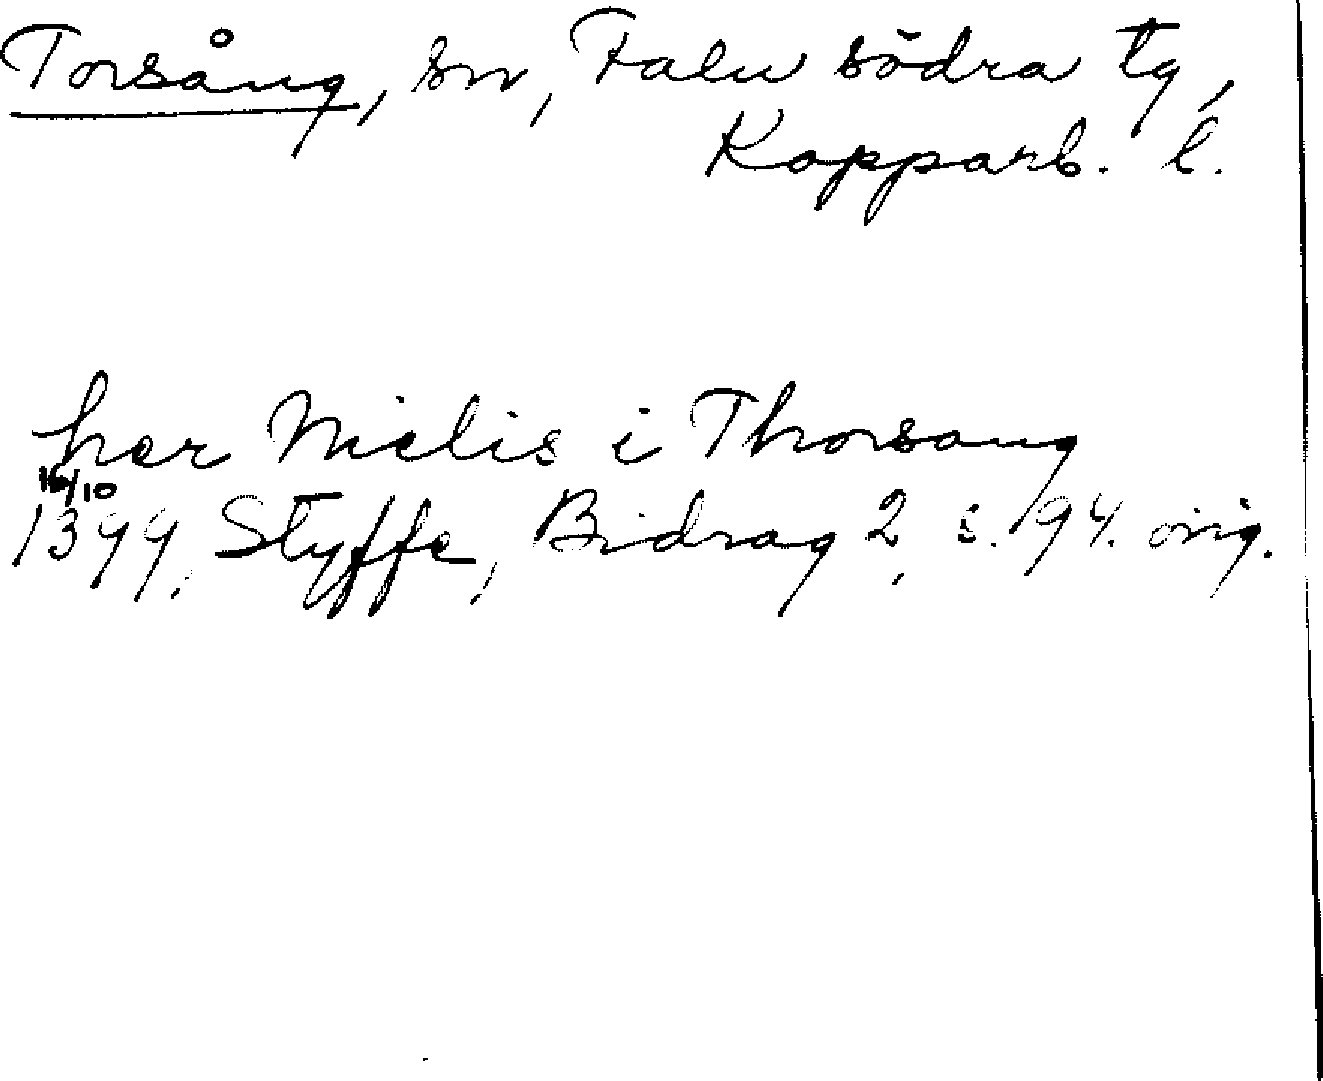 Torsång, sn, Falu södra tg,
Kopparb. l.
her Nielis i Thorsang
16/10
1399, Styffe, Bidrag 2, s. 194. orig.